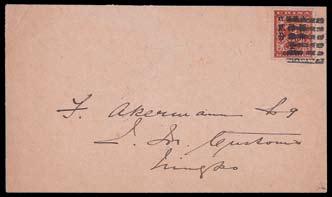 CHINA
F. Akermann Esq
I. M. Customs
Ningpo